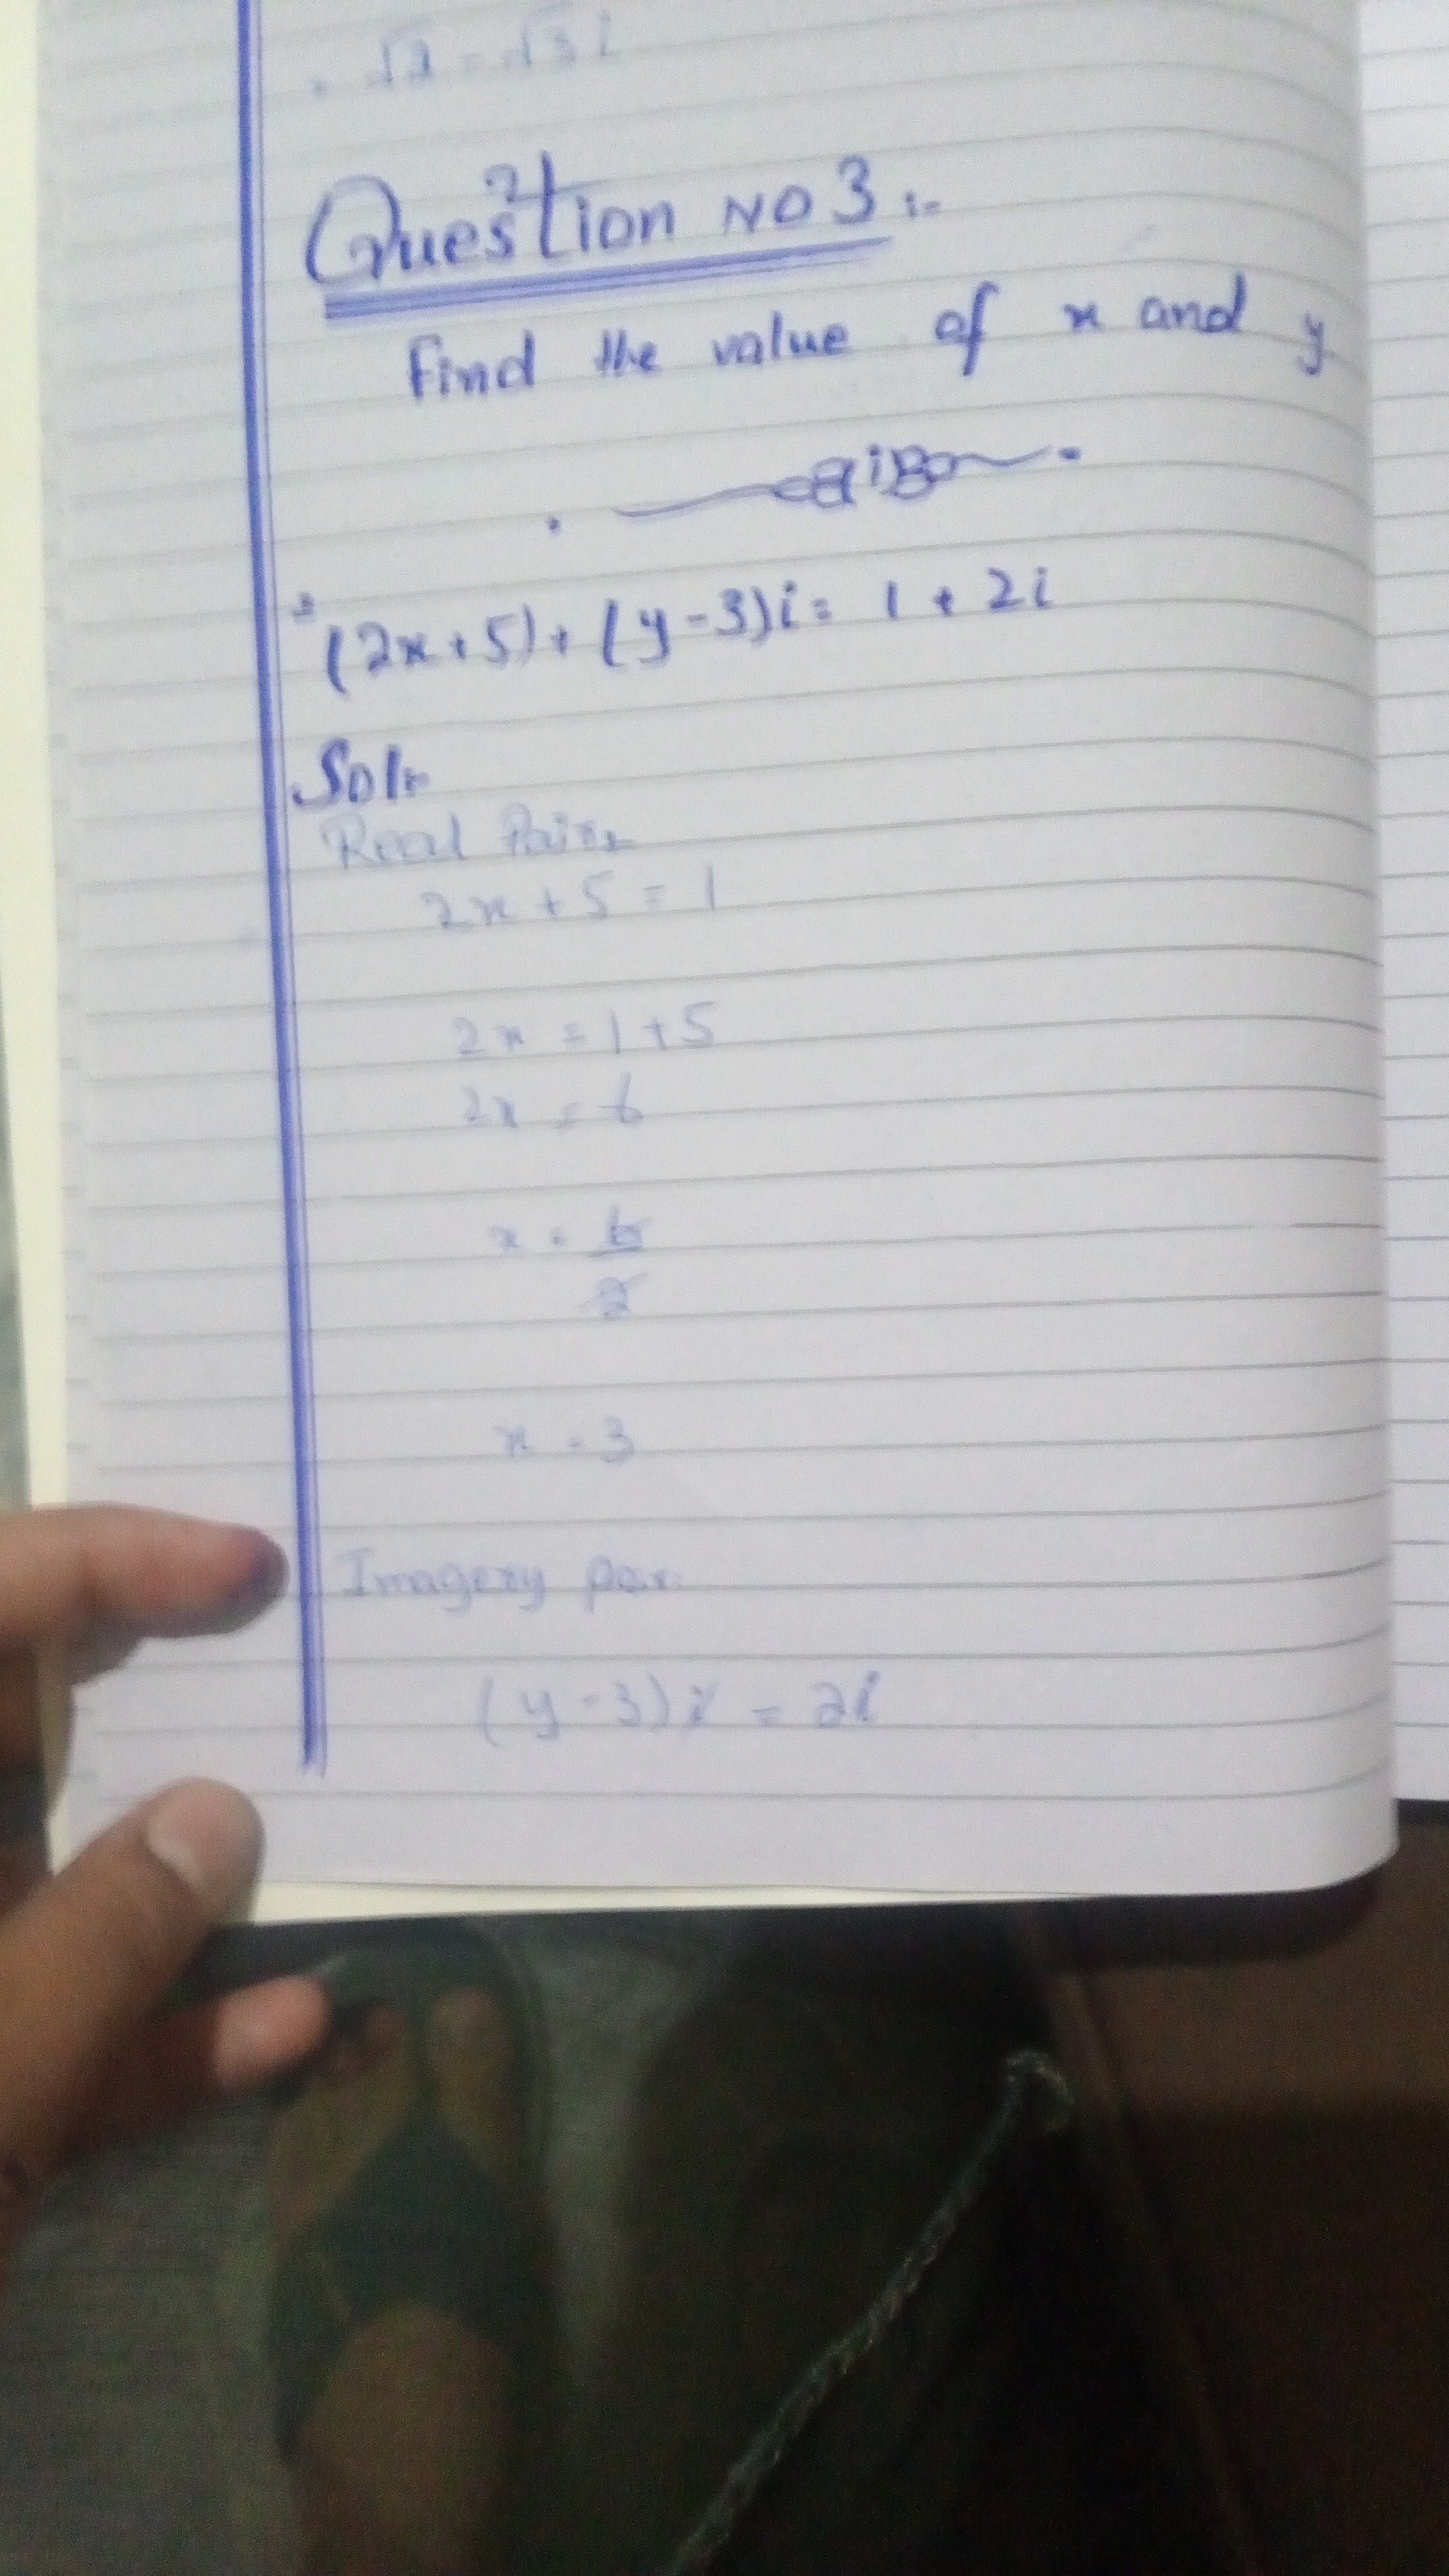 √2 = √3 i
Question NO 3 :-
Find the value of x and y
(2x+5)+(y-3)i = 1 + 2i
Sol:-
Real
2x + 5 = 1
2x = 1 + 5
2x = 6
x = 6
2
x = 3
(y - 3) i = 2i